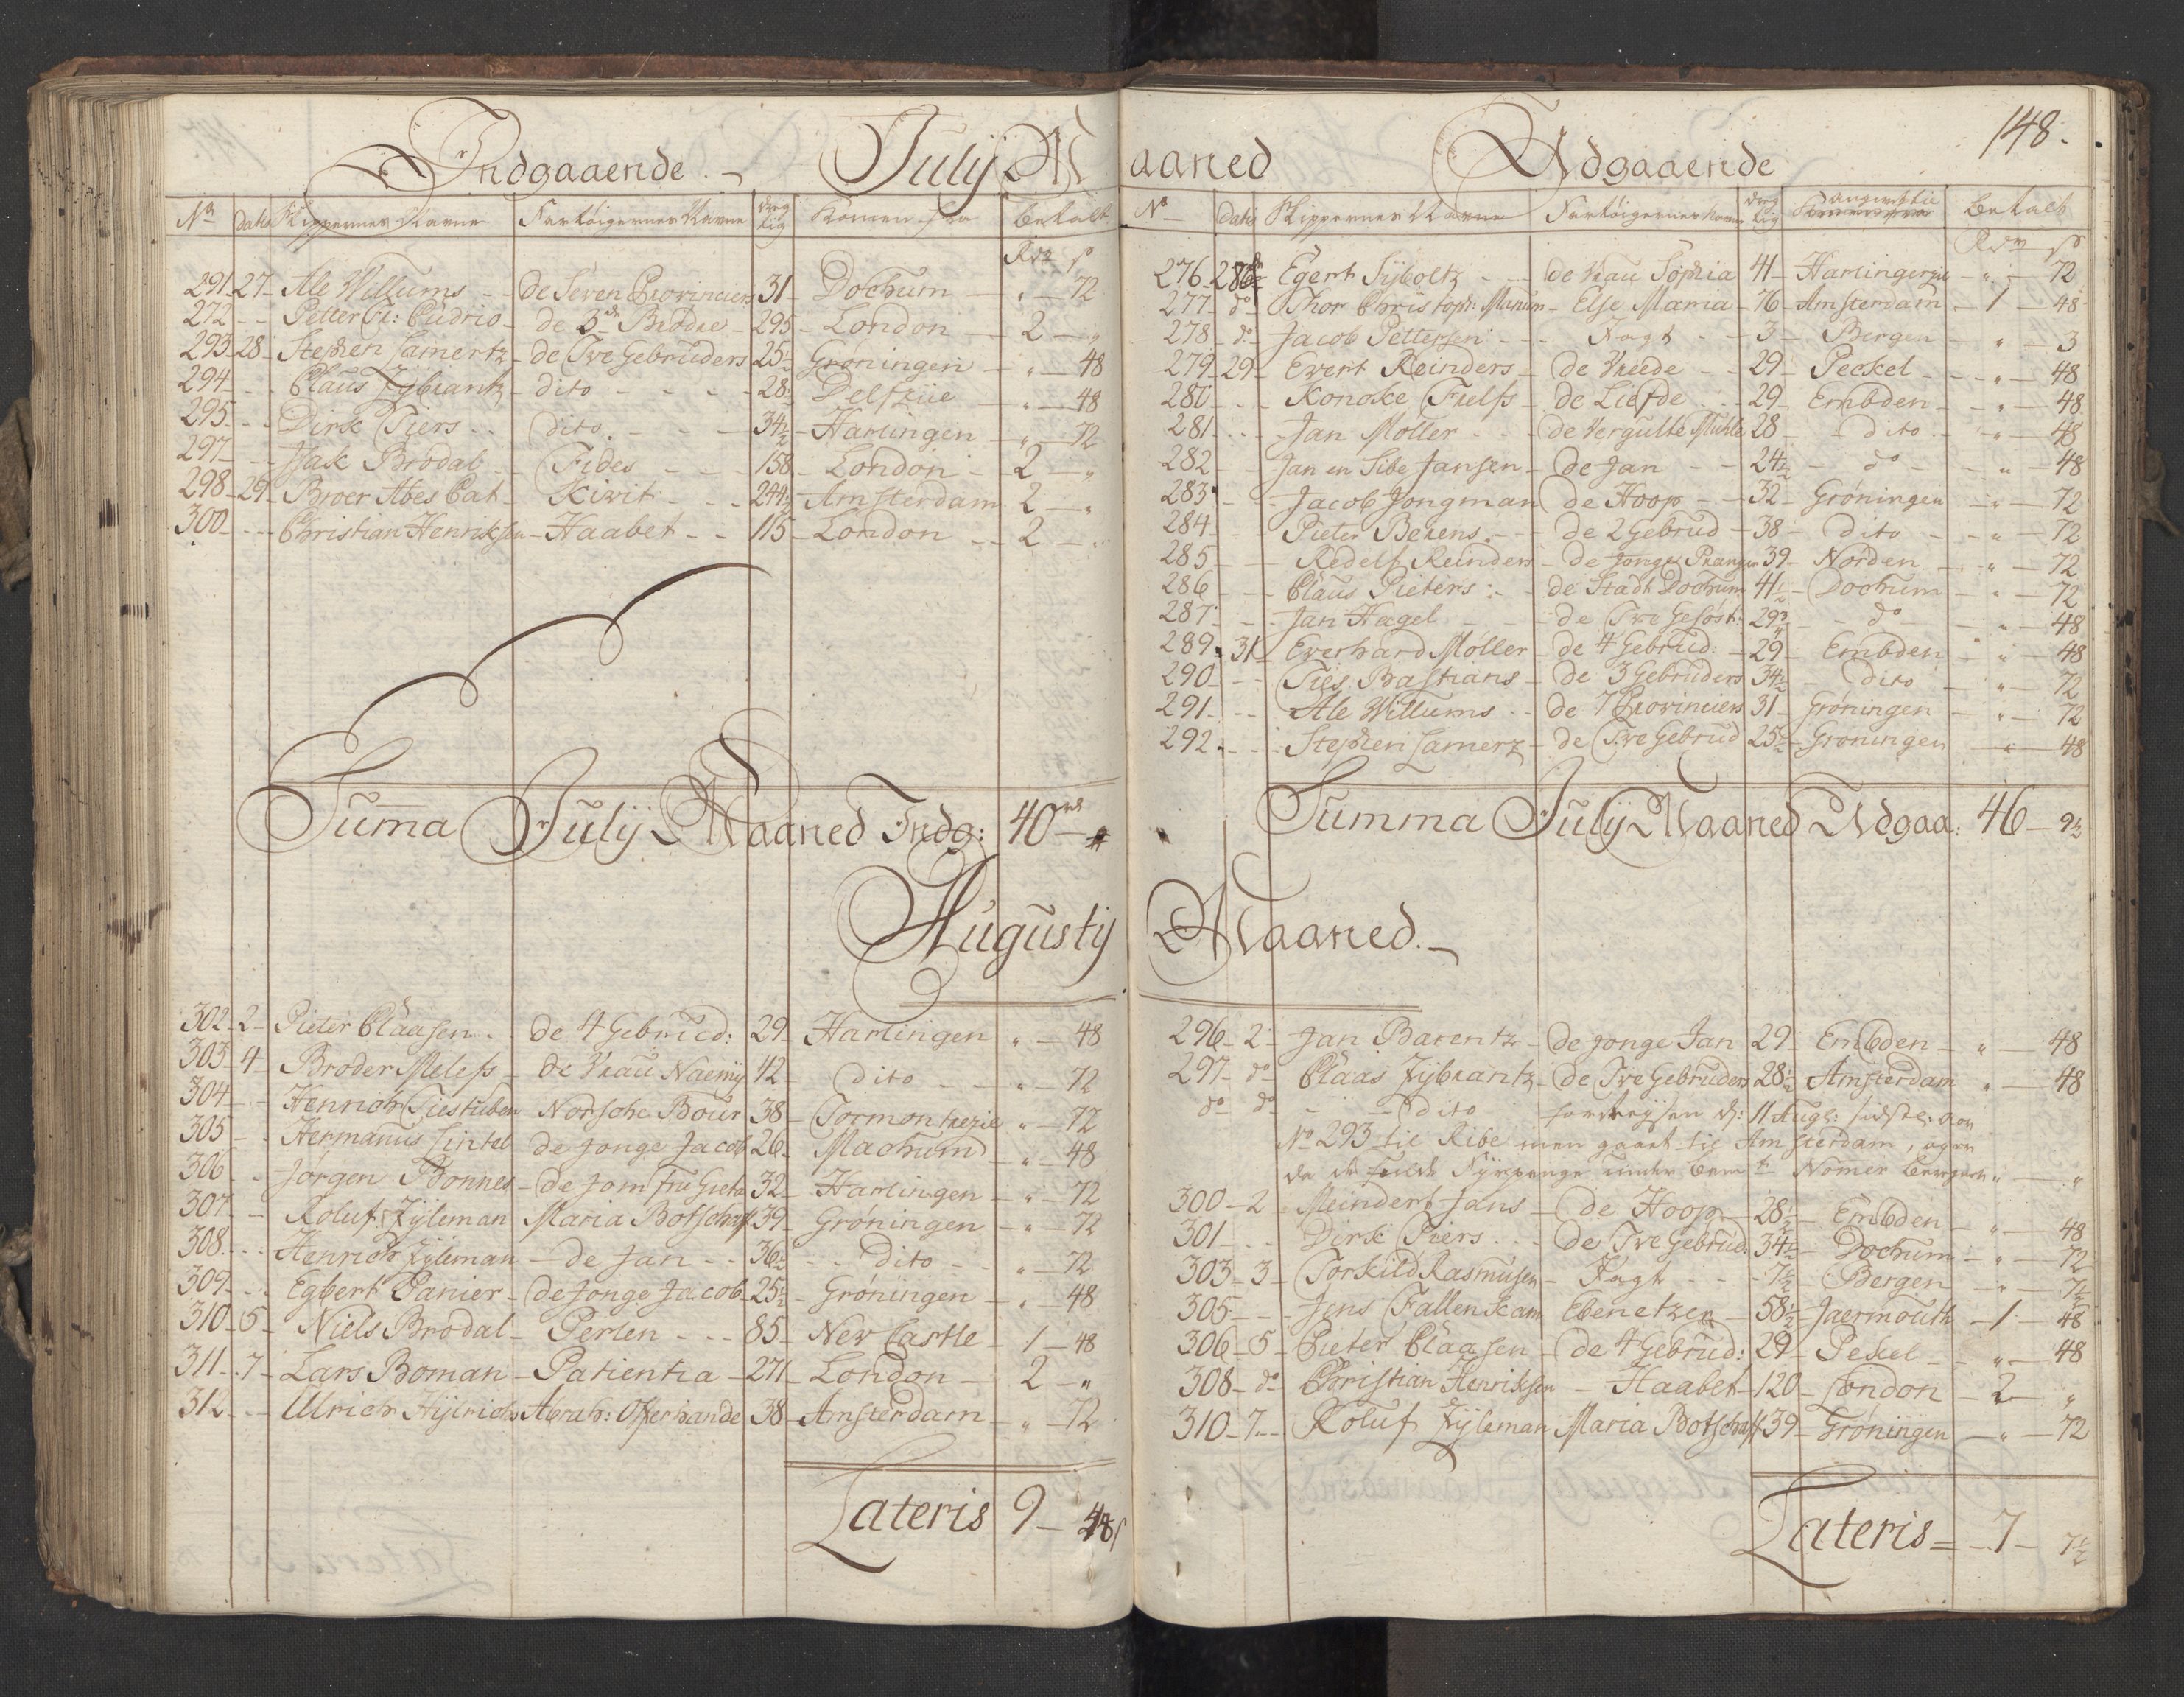 Indgaaende. Julij M
No Datis Skippernes Navne Fartøigernes Navne Dræg tig Komen fra betalt
Rdr ß
291 27 Ale Willums de Seven Provincier 31 Dochum " 72
272 Petter de 3de Brødre 295 London 2 "
293 28 Stephen Lamertz de Tve Gebruders 25½ Grøningen " 48
294 Claus Zijbrantz dito 28½ Delfziie " 48
295 Dirk Piers dito 34½ Harlingen " 72
297 Isak Brodal Fides 158 London 2 "
298 29 Broer Abes Cat Kivit 244½ Amsterdam 2 "
300 Christian Henriksen Haabet 115 London 2
Summa Julij Maaned Indg: 40rd
Augustij
302 2 Pieter Claasen de 4 Gebrued: 29 Harlingen " 48
303 4 Broder Melefs de Vrau Naemij 42 dito " 72
304 Henrich Norsche Bour 38 " 72
305 Hermanus Lintel de Jonge Jacob 26 Machum " 48
306 Jørgen Bonnes de Jomfru Greta 32 Harlingen " 72
307 Roluf Zijleman Maria Botschaf 39 Grøningen " 72
308 Henrich Zijleman de Jan 36½ dito " 72
309 Egbert Panier de Jonge Jacob 25½ Grøningen " 48
310 5 Niels Brodal Perlen 85 New Castle 1 48
311 7 Lars Boman Patientia 271 London 2 "
312 Ulrich Hijlrichs Abrah: Offerhande 38 Amsterdam " 72
Lateris 9 48
148.
aaned Udgaaende
No Datis Skippernes Navne Fartøigernes Navne Dræg tig Angivet til betalt
Rdr ß
276 28 Egert Sijboltz de Vrau Sophia 41 Harlinger " 72
277 do Thor Christoph: Manum Else Maria 76 Amsterdam 1 48
278 do Jacob Pettersen Jagt 3 Bergen " 3
279 29 Evert Reinders de Vreede 29 Peckel " 48
280 Konoke Frelfs de Liefde 29 Embden " 48
281 Jan Møller de Vergulte Muhle 28 dito " 48
282 Jan en Sibe Jansen de Jan 24½ do " 48
283 Jacob Jongman de Hoop 32 Grøningen " 72
284 Pieter Berens de 2 Gebrud 38 dito " 72
285 Redelf Reinders de Jonge Pranger 39 Norden " 72
286 Claus Pieters de Stadt Dochum 41½ Dochum " 72
287 Jan Hagel de Tve Gesøst: 29¾ do " 48
289 31 Everhard Møller de 4 Gebrud: 29 Embden " 48
290 Ties Bastians de 3 Gebruders 34½ dito " 72
291 Ale Willums de 7 Provinciers 31 Grøningen " 72
292 Stephen Lamerz de Tve Gebrud 25½ Grøningen " 48
Summa Julij Maaned Udgaa: 46 9½
Maaned.
296 2 Jan Barentz de Jonge Jan 29 Embden " 48
297 do Claas Zijbrantz de Tve Gebruders 28½ Amsterdam " 48
do do dito d: 11 Aug: sidstl:
No 293 til Ribe men gaaet til Amsterdam,
de de fulde Fyrpenge under bemte Nomer " "
300 2 Meindert Jans de Hoop 28½ Embden " 48
301 Dirk Piers de Tve Gebrud 34½ Dochum " 72
303 3 Torkild Rasmusen Jagt 7½ Bergen " 7½
305 Jens Fallenkam Ebenetzer 58½ Jaermouth 1 48
306 5 Pieter Claasen de 4 Gebrud: 29 Pekel " 48
308 do Christian Henriksen Haabet 120 London 2 "
310 7 Roluf Zijleman Maria Botschaft 39 Grøningen " 72
Lateris 7 7½